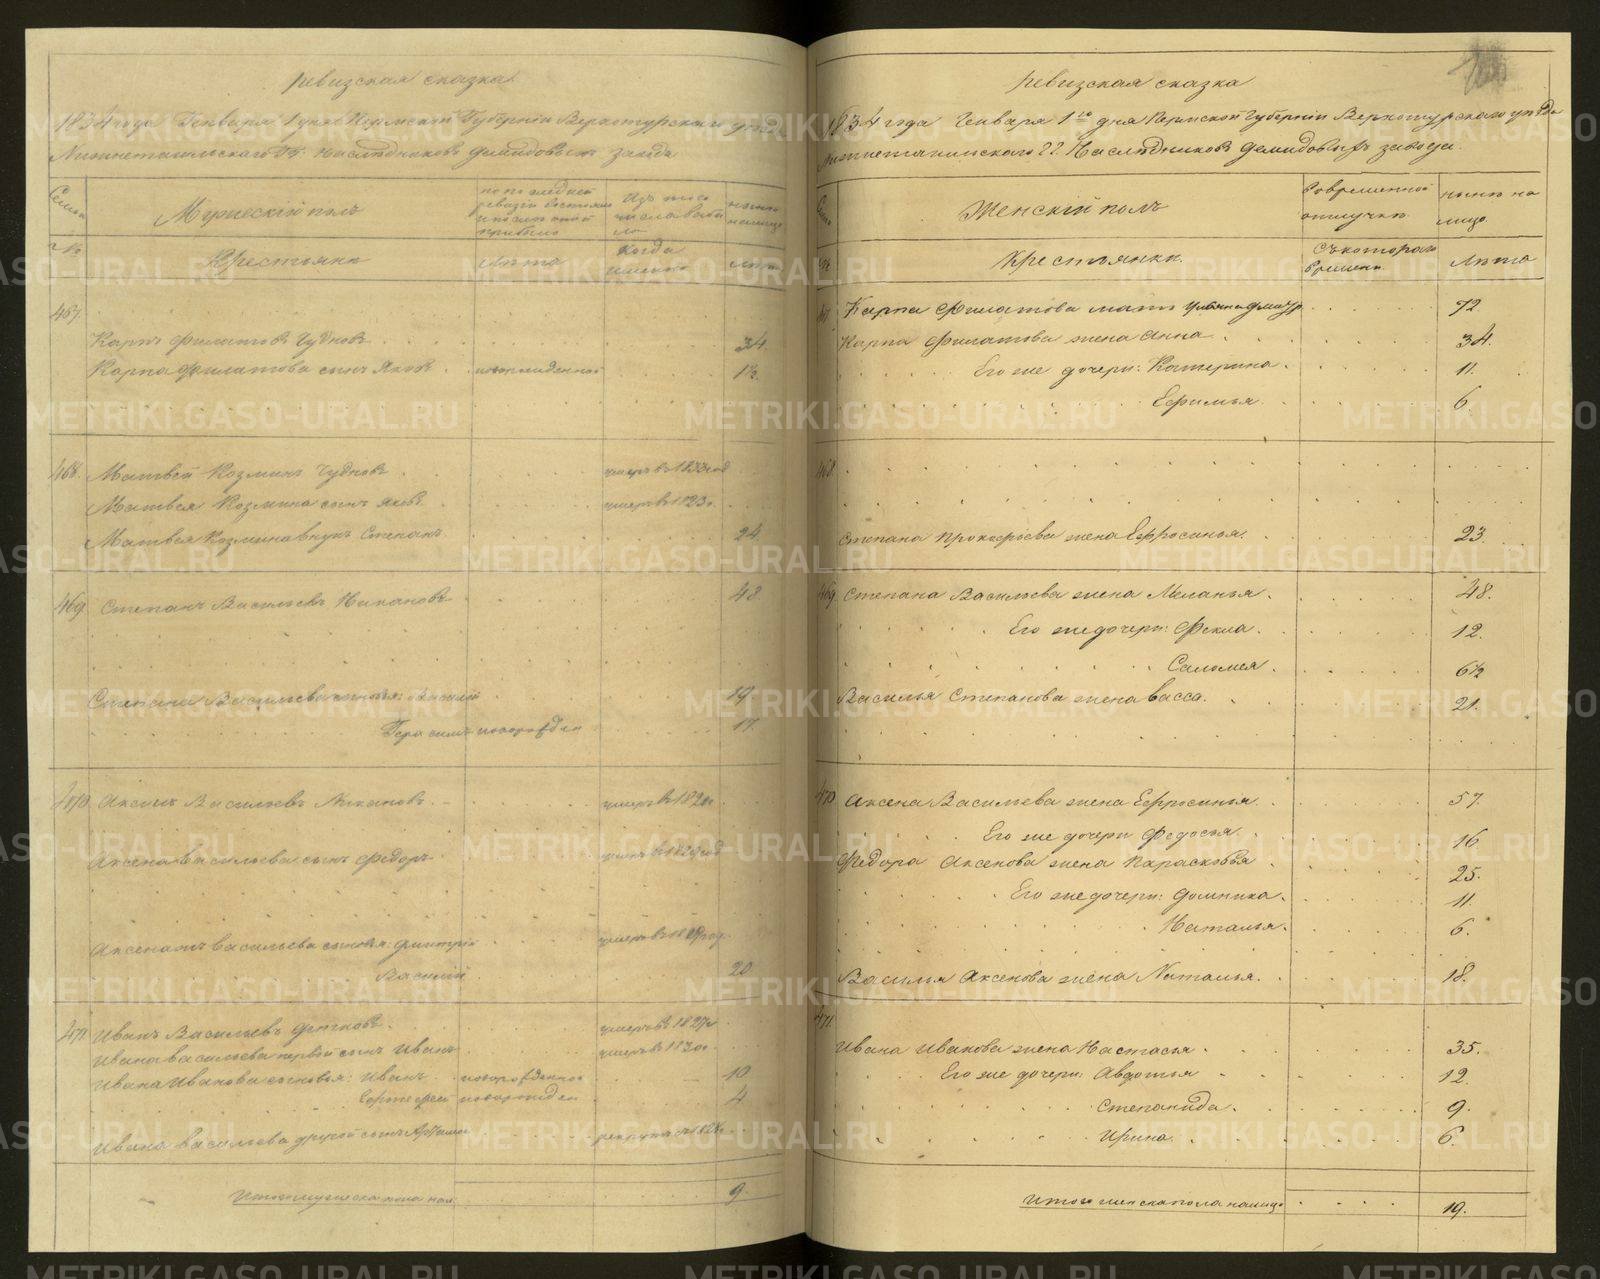 Ревизская сказка
1834 года Генваря 1 дня Пермской Губернии Верхотурскаго уезда
Нижнетагильскаго Гг. Наследников Демидовых завода
Семьи
Мужеский полъ
по последней ревизии состояло и после оной прибыло
Изъ того числа выбыло
ныне на лицо
№
Крестьяне
Лета
Когда именно
Лета
467.
Карпъ Филатовъ Чудновъ 34.
Карпа Филатова сынъ Яковъ новорожденной 1½
468. Матвей Козминъ Чудновъ умеръ въ 1833 год
Матвея Козмина сынъ Яковъ умеръ в 1823
Матвея Козмина внукъ Степанъ 24
469 Степанъ Васильевъ Никановъ 48
Степана Васильева сыновья: Василей 19
Герасимъ новорожден 17.
470 Аксенъ Васильевъ Никановъ умеръ въ 182
Аксена Васильева сынъ Федоръ умеръ в 1829 год
Аксена Васильева сыновья: Дмитрий умеръ в 18 год
Василий 20
471 Иванъ Васильевъ умеръ въ 1827
Ивана Васильева первой сынъ Иванъ умеръ въ 1830
Ивана Иванова сыновья: Иванъ новорожденной 10
Сергей новорожден 4
Ивана Васильева другой сынъ рекрутъ 1828
Итого мужеска пола нал. 9.
Ревизская сказка
1834 года Генваря 1го дня Пермской Губернии Верхотурскаго уезда
Нижнетагильскаго ГГ. Наследниковъ Демидовыхъ завода.
Семьи
Женский полъ
Во временной отлучке
ныне на лицо.
№
Крестьянки.
Съ котораго времени
Лета
467 Карпа Филатова мать 72
Карпа Филатова жена Анна 34.
Его же дочери: Катерина 11.
Ефимья 6.
468
Степана Прокофьева жена Ефросинья. 23.
469 Степана Васильева жена Меланья. 48.
Его же дочери: Фекла. 12.
Саломея. 6½
Василья Степанова жена Васса. 21.
470 Аксена Васильева жена Ефросинья. 57.
Его же дочери Федосья. 16
Федора Аксенова жена Парасковья 25.
Его же дочери: Домника. 11.
Наталья. 6.
Василья Аксенова жена Наталья. 18.
471.
Ивана Иванова жена Настасья 35.
Его же дочери: Авдотья 12.
Степанида. 9.
Ирина. 6.
Итого женска пола налицо 19.
METRIKI.GASO-URAL.RU